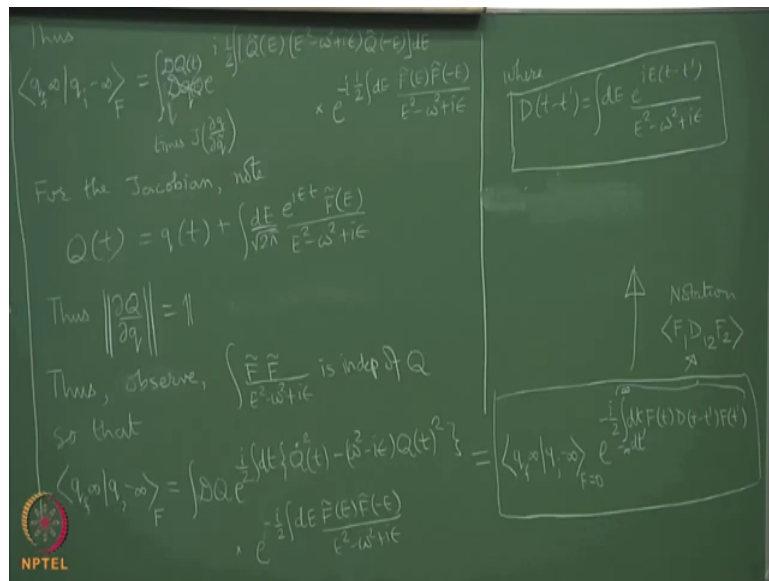 Thus
⟨q_f, ∞ | q, -∞⟩_F = ∫ DQ(t) e^{i ½ ∫[Q̃(E)(E²-ω²+iϵ)Q̃(-E)]dE}
× e^{-i ½ ∫dE F̃(E)F̃(-E) / E²-ω²+iϵ}
times J(∂q/∂q̃)
For the Jacobian, note
Q(t) = q(t) + ∫ dE/√2π e^{iEt} F̃(E) / E²-ω²+iϵ
Thus ||∂Q/∂q|| = 1
Thus, observe, ∫ F̃ F̃ / E²-ω²+iϵ is indep of Q
so that
⟨q_f, ∞ | q, -∞⟩_F = ∫ DQ e^{i/2 ∫dt{Q̇²(t) - (ω²-iϵ)Q(t)²}}
× e^{-i ½ ∫dE F̃(E)F̃(-E) / E²-ω²+iϵ}
where
D(t-t') = ∫dE e^{iE(t-t')} / E²-ω²+iϵ
Notation
⟨F₁D₁₂F₂⟩
= ⟨q_f, ∞ | q, -∞⟩_{F=0} e^{-i/2 ∫_{-∞}^{∞} dt dt' F(t)D(t-t')F(t')}
NPTEL